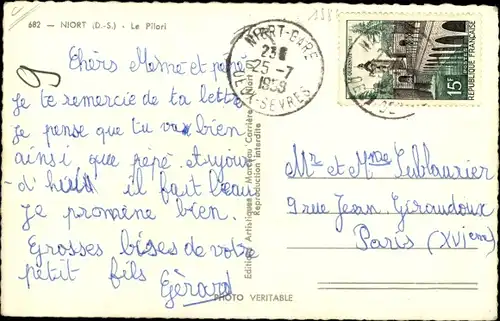 682 - NIORT (D.-S.) - Le Pilori
9
Chers Mémé et pépé
je te remercie de ta lettre
je pense que tu vas bien
ainsi que pépé. Aujour
d'hui il fait beau
je promène bien.
Grosses bises de votre
petit fils
Gérard
Editions Artistiques
Reproduction interdite
PHOTO VERITABLE
NIORT-GARE
25-7
1958
DEUX-SEVRES
15F
REPUBLIQUE FRANÇAISE
Mr et Mme Leblaurier
9 rue Jean Giraudoux
Paris (XVIem)